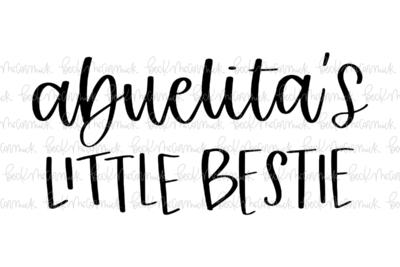 abuelita's
LITTLE BESTIE